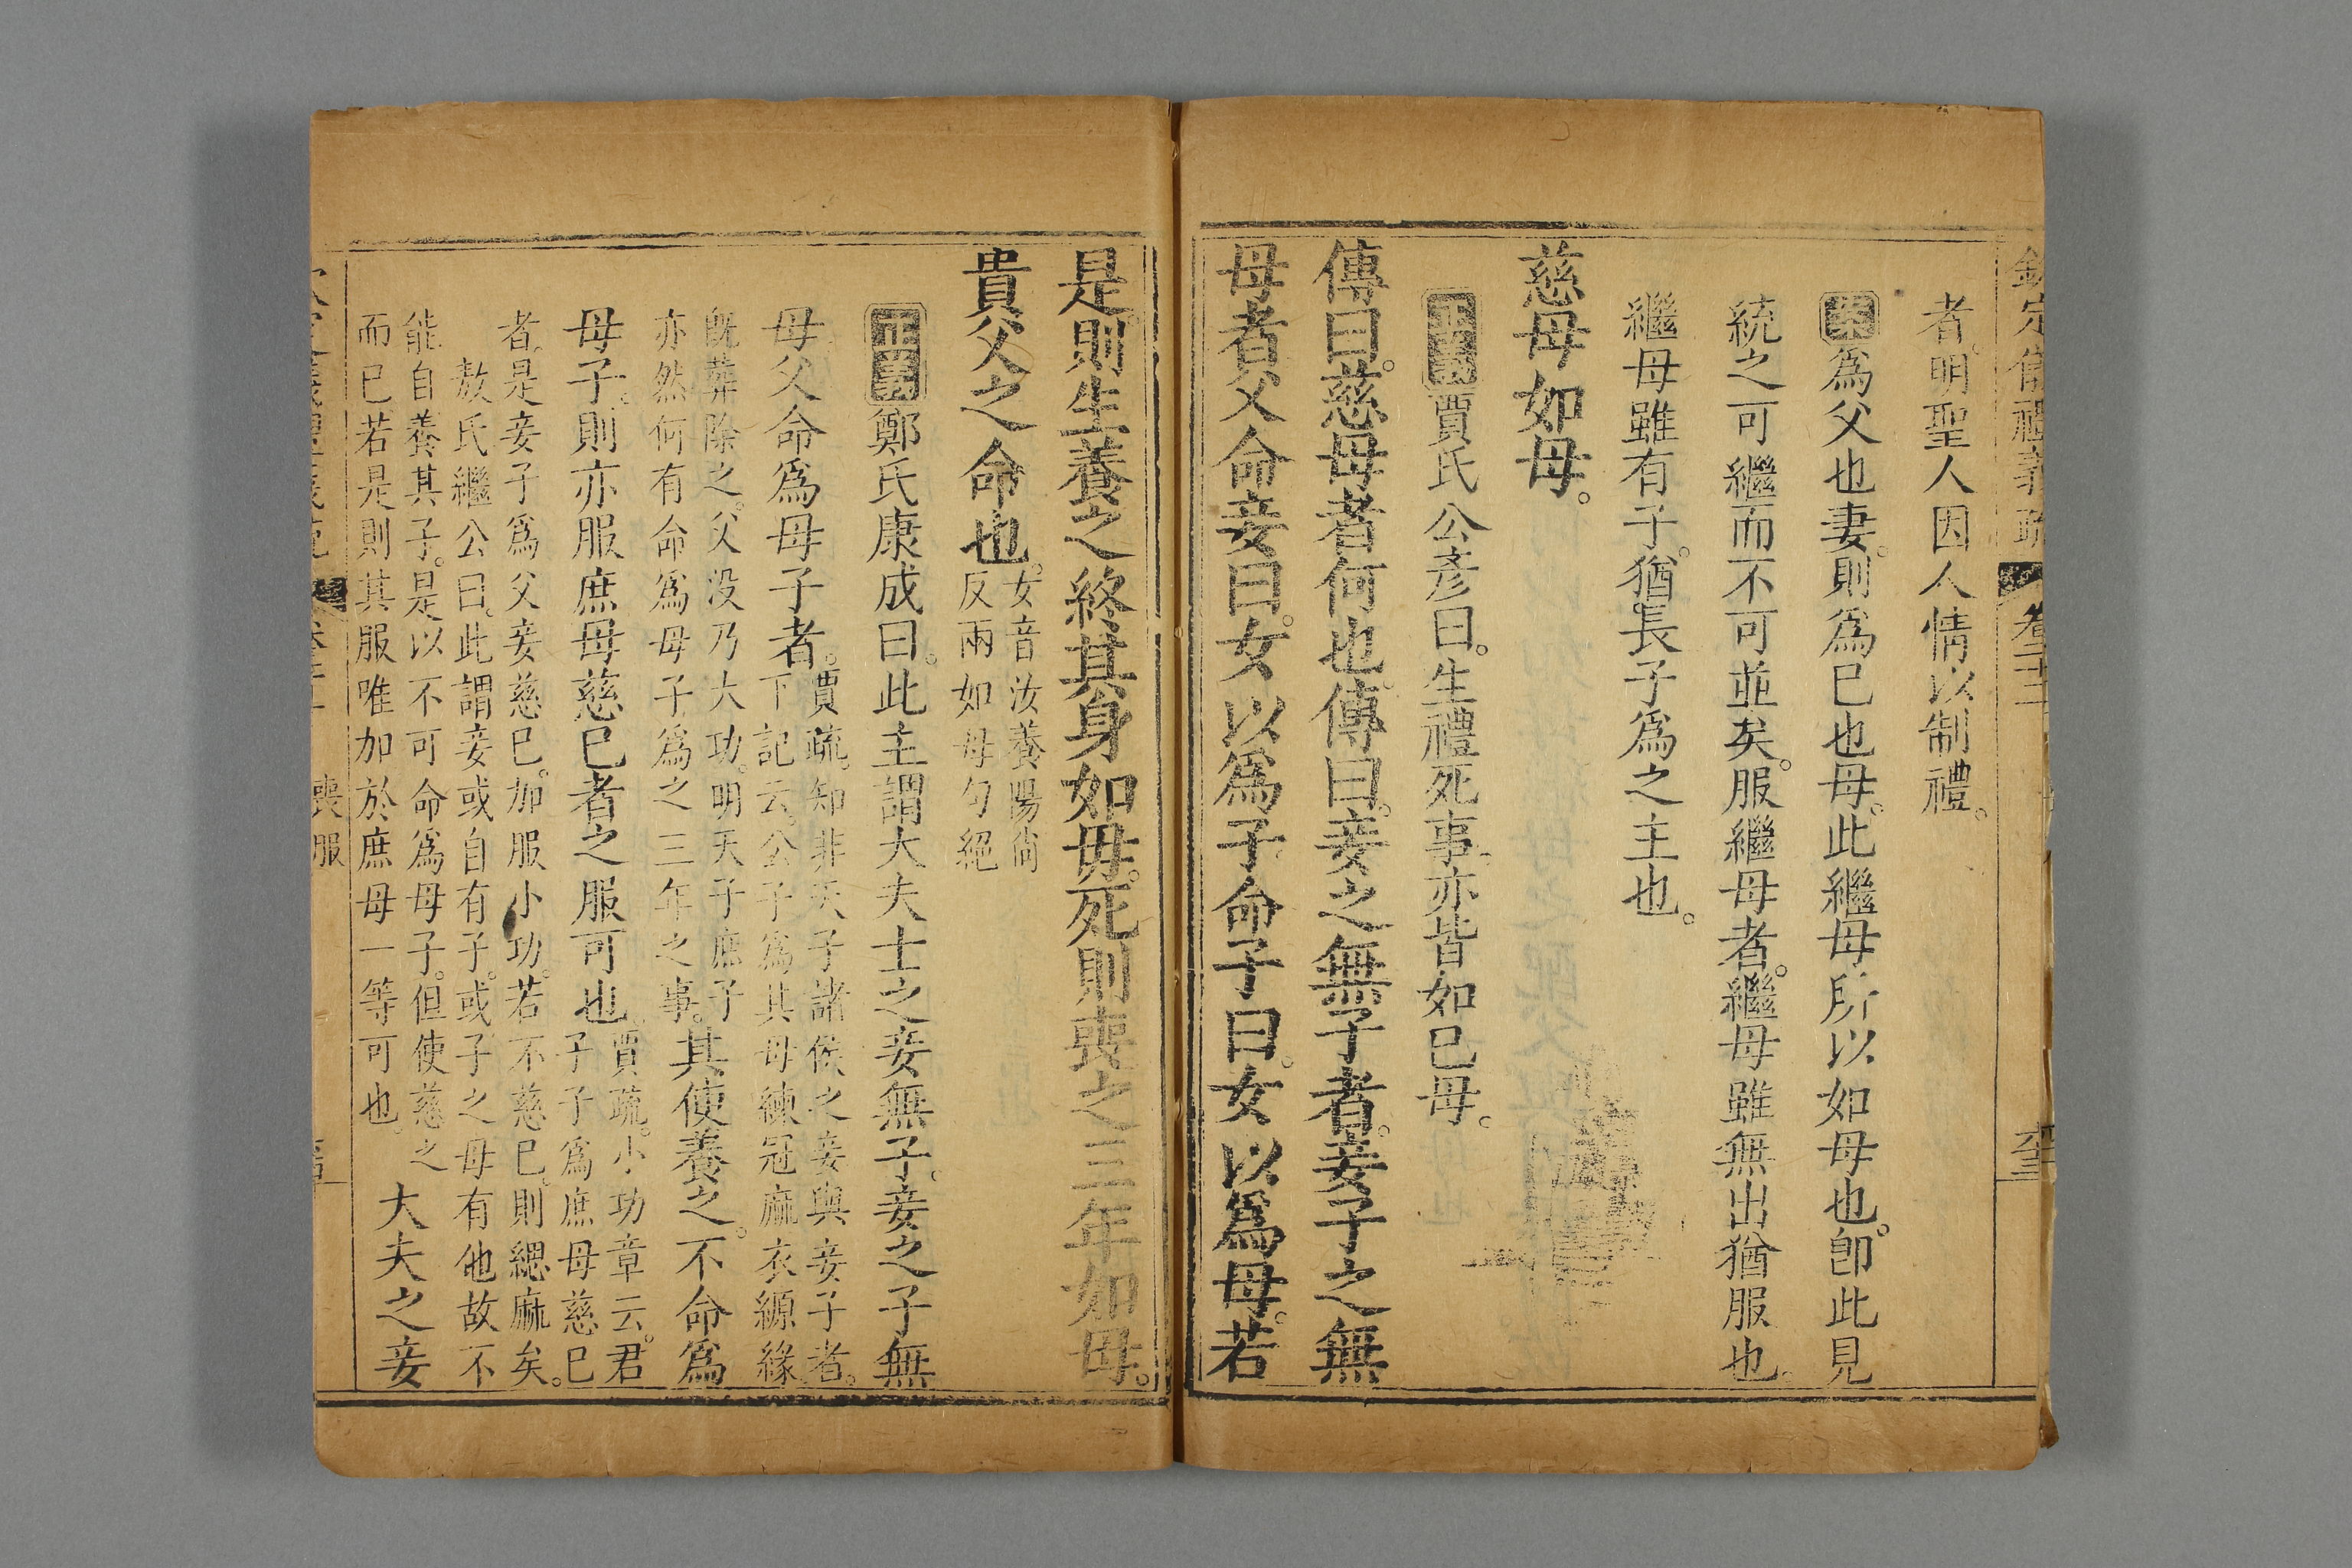 欽定儀禮義疏 卷二十二
者明聖人因人情以制禮。
案爲父也妻。則爲已也母。此繼母所以如母也。卽此見
統之可繼而不可並矣。服繼母者。繼母雖無出猶服也。
繼母雖有子。猶長子爲之主也。
慈母如母。
正義賈氏公彥曰。生禮死事。亦皆如已母。
傳曰。慈母者何也。傳曰。妾之無子者。妾子之無
母者父命妾曰。女以爲子。命子曰。女以爲母。若
是。則生養之終其身如母。死則喪之三年如母。
貴父之命也。女音汝養陽尙
反兩如母句絕
正義鄭氏康成曰。此主謂大夫士之妾無子。妾之子無
母父命爲母子者。賈疏。知非天子諸侯之妾與妾子者。
下記云。公子爲其母練冠麻衣縓緣
旣葬除之。父没乃大功。明天子庶子
亦然何有命爲母子爲之三年之事。其使養之。不命爲
母子。則亦服庶母慈已者之服可也。賈疏。小功章云。君
子子爲庶母慈已
者。是妾子爲父妾慈已。加服小功。若不慈已。則緦麻矣。
敖氏繼公曰。此謂妾或自有子。或子之母有他故不
能自養其子。是以不可命爲母子。但使慈之
而已若是則其服唯加於庶母一等可也。大夫之妾
喪服